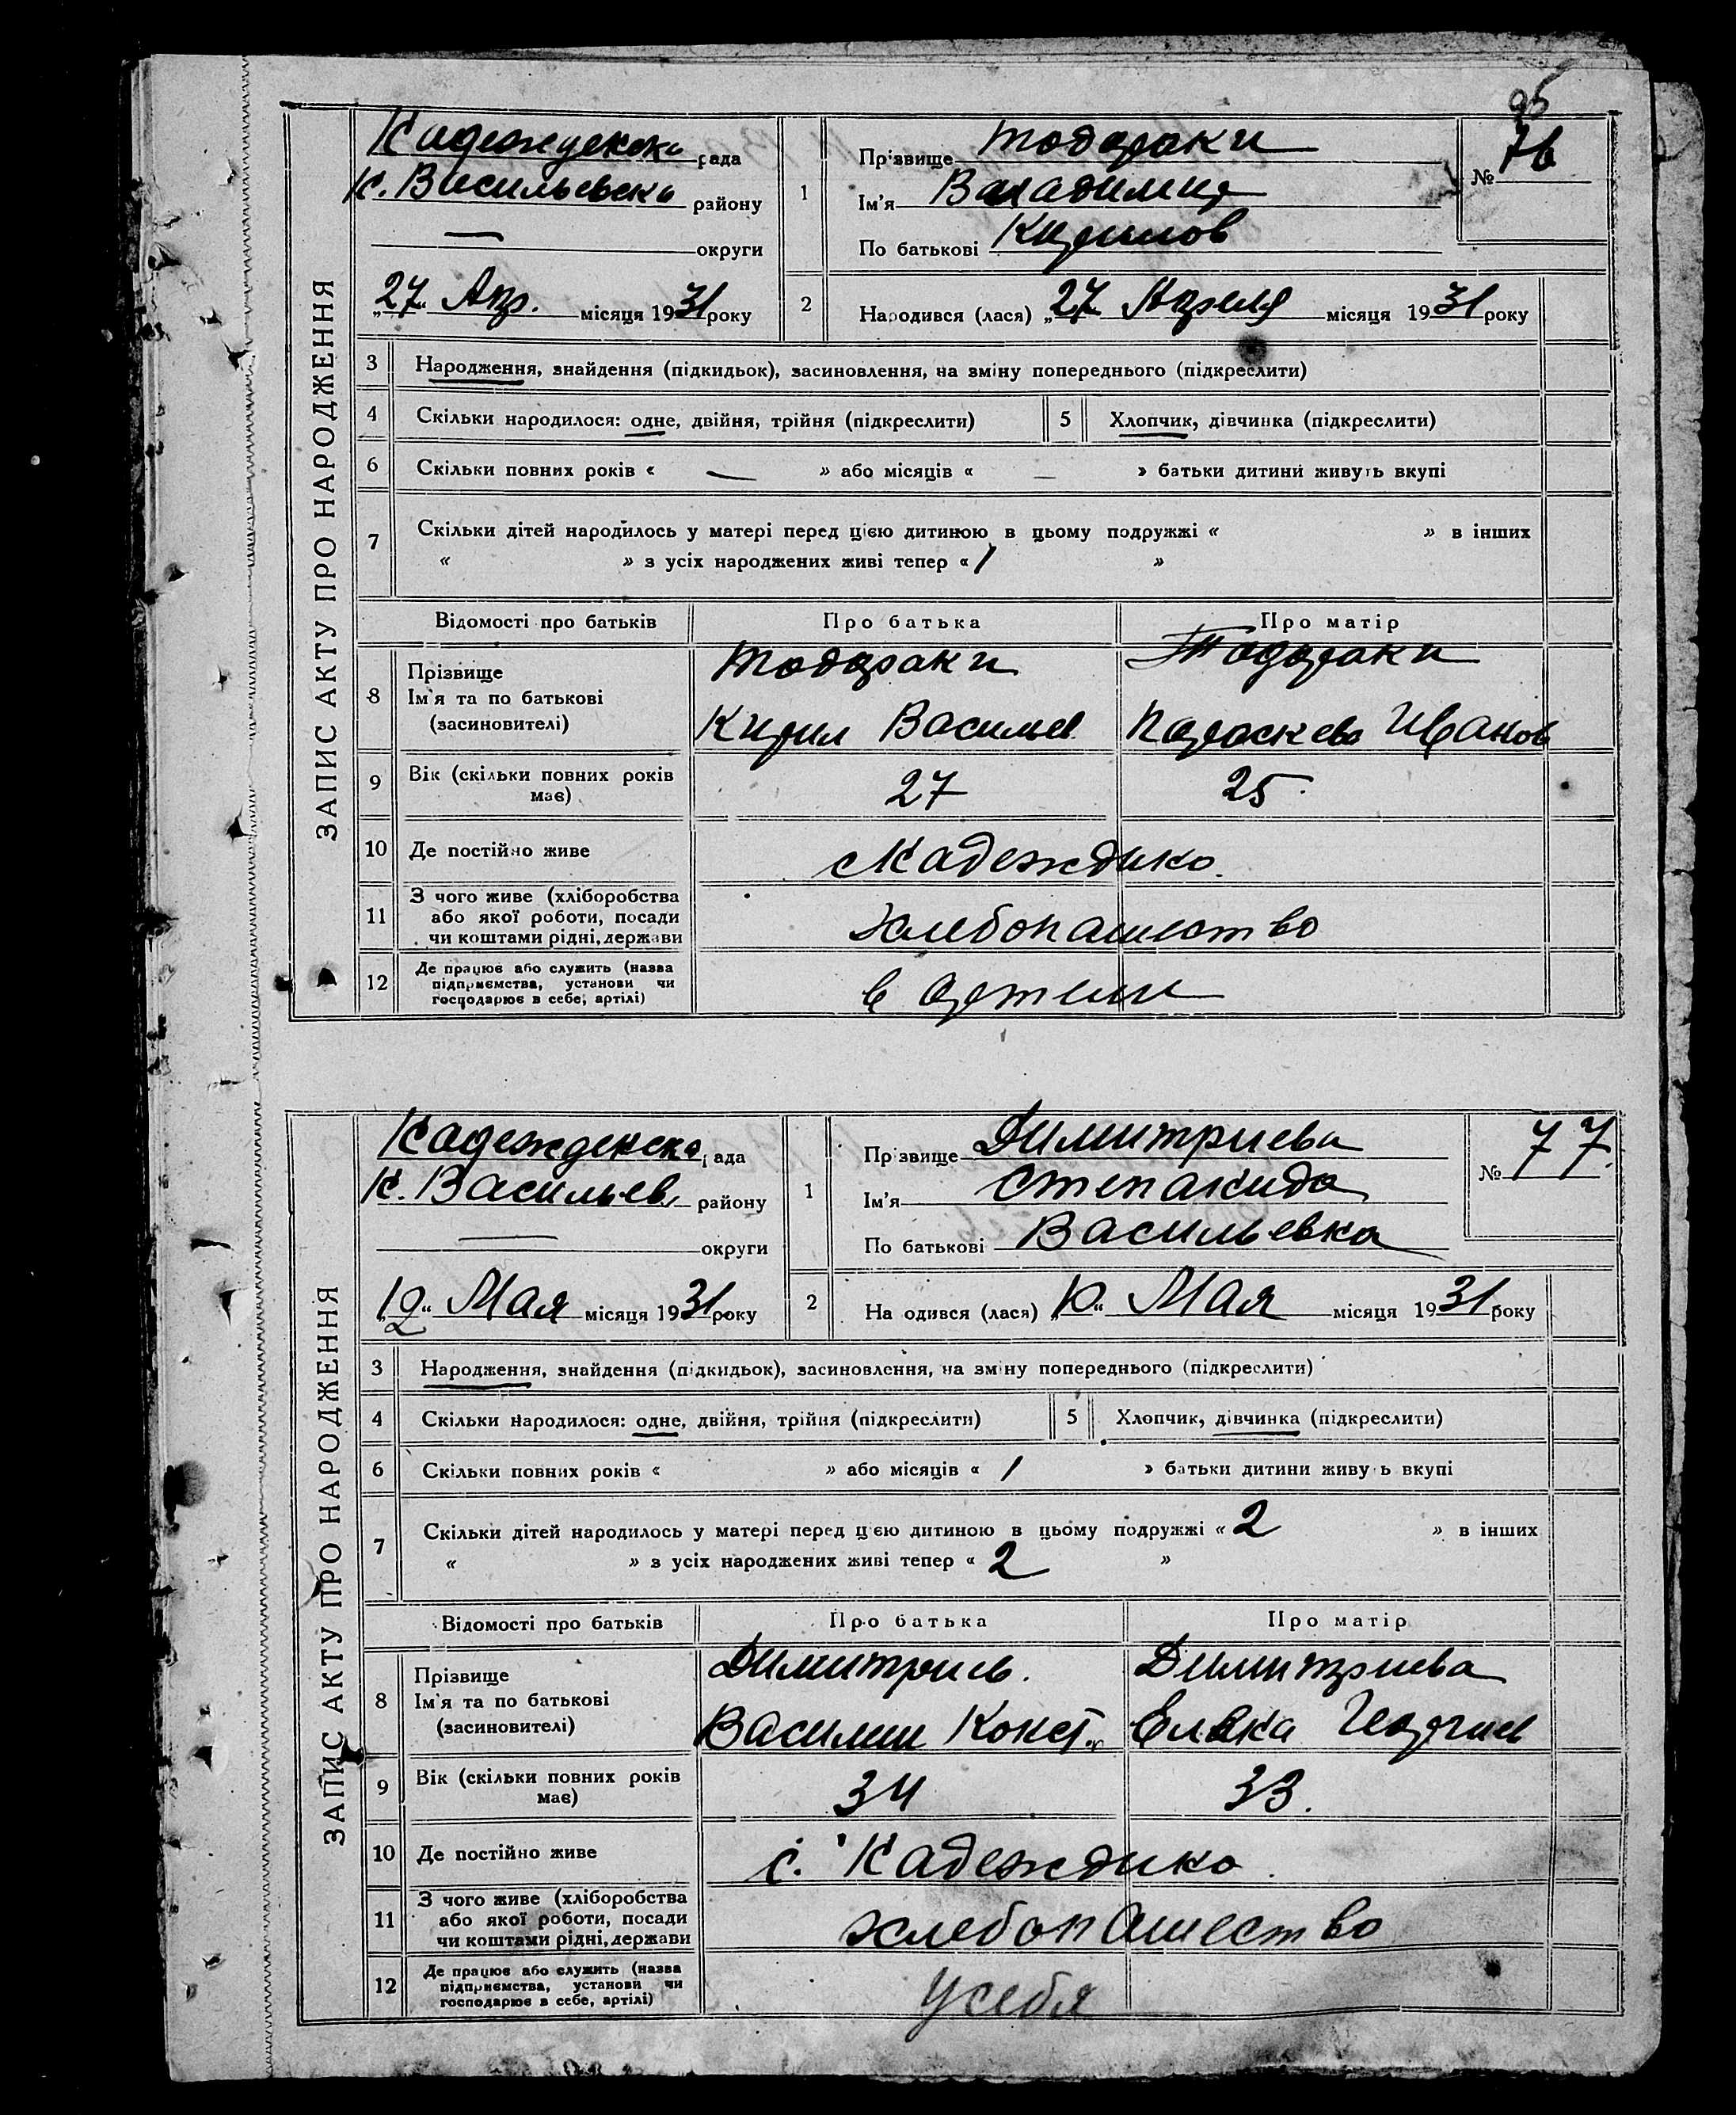 95
ЗАПИС АКТУ ПРО НАРОДЖЕННЯ
Надежденска рада
Н. Васильевска району
— округи
„27" Апр. місяця 1931 року
1
Прізвище Тодораки
Ім'я Владимир
По батькові Кирилов
№ 76
2
Народився (лася) „27" Апреля місяця 1931 року
3 Народження, знайдення (підкидьок), засиновлення, на зміну попереднього (підкреслити)
4 Скільки народилося: одне, двійня, трійня (підкреслити) 5 Хлопчик, дівчинка (підкреслити)
6 Скільки повних років « — » або місяців « — » батьки дитини живуть вкупі
7 Скільки дітей народилось у матері перед цією дитиною в цьому подружжі « » в інших
« » з усіх народжених живі тепер « 1 »
Відомості про батьків Про батька Про матір
8 Прізвище
Ім'я та по батькові
(засновителі)
Тодораки
Кирил Васильев
Тодораки
Параскева Иванов
9 Вік (скільки повних років
має)
27 25
10 Де постійно живе с Надеждино.
11 З чого живе (хліборобства
або якої роботи, посади
чи коштами рідні, держави
хлебопашество
12 Де працює або служить (назва
підприємства, установи чи
господарює в себе, артілі)
в артели
ЗАПИС АКТУ ПРО НАРОДЖЕННЯ
Надежденска рада
Н. Васильев району
— округи
„12" Мая місяця 1931 року
1
Прізвище Димитриева
Ім'я Степанида
По батькові Васильевна
№ 77.
2
Народився (лася) „10" Мая місяця 1931 року
3 Народження, знайдення (підкидьок), засиновлення, на зміну попереднього (підкреслити)
4 Скільки народилося: одне, двійня, трійня (підкреслити) 5 Хлопчик, дівчинка (підкреслити)
6 Скільки повних років « » або місяців « 1 » батьки дитини живуть вкупі
7 Скільки дітей народилось у матері перед цією дитиною в цьому подружжі « 2 » в інших
« » з усіх народжених живі тепер « 2 »
Відомості про батьків Про батька Про матір
8 Прізвище
Ім'я та по батькові
(засиновителі)
Димитриев.
Василий Конст.
Димитриева
Елена Георгиев
9 Вік (скільки повних років
має)
34 33.
10 Де постійно живе с. Надеждино.
11 З чого живе (хліборобства
або якої роботи, посади
чи коштами рідні, держави
хлебопашество
12 Де працює або служить (назва
підприємства, установи чи
господарює в себе, артілі)
У себя